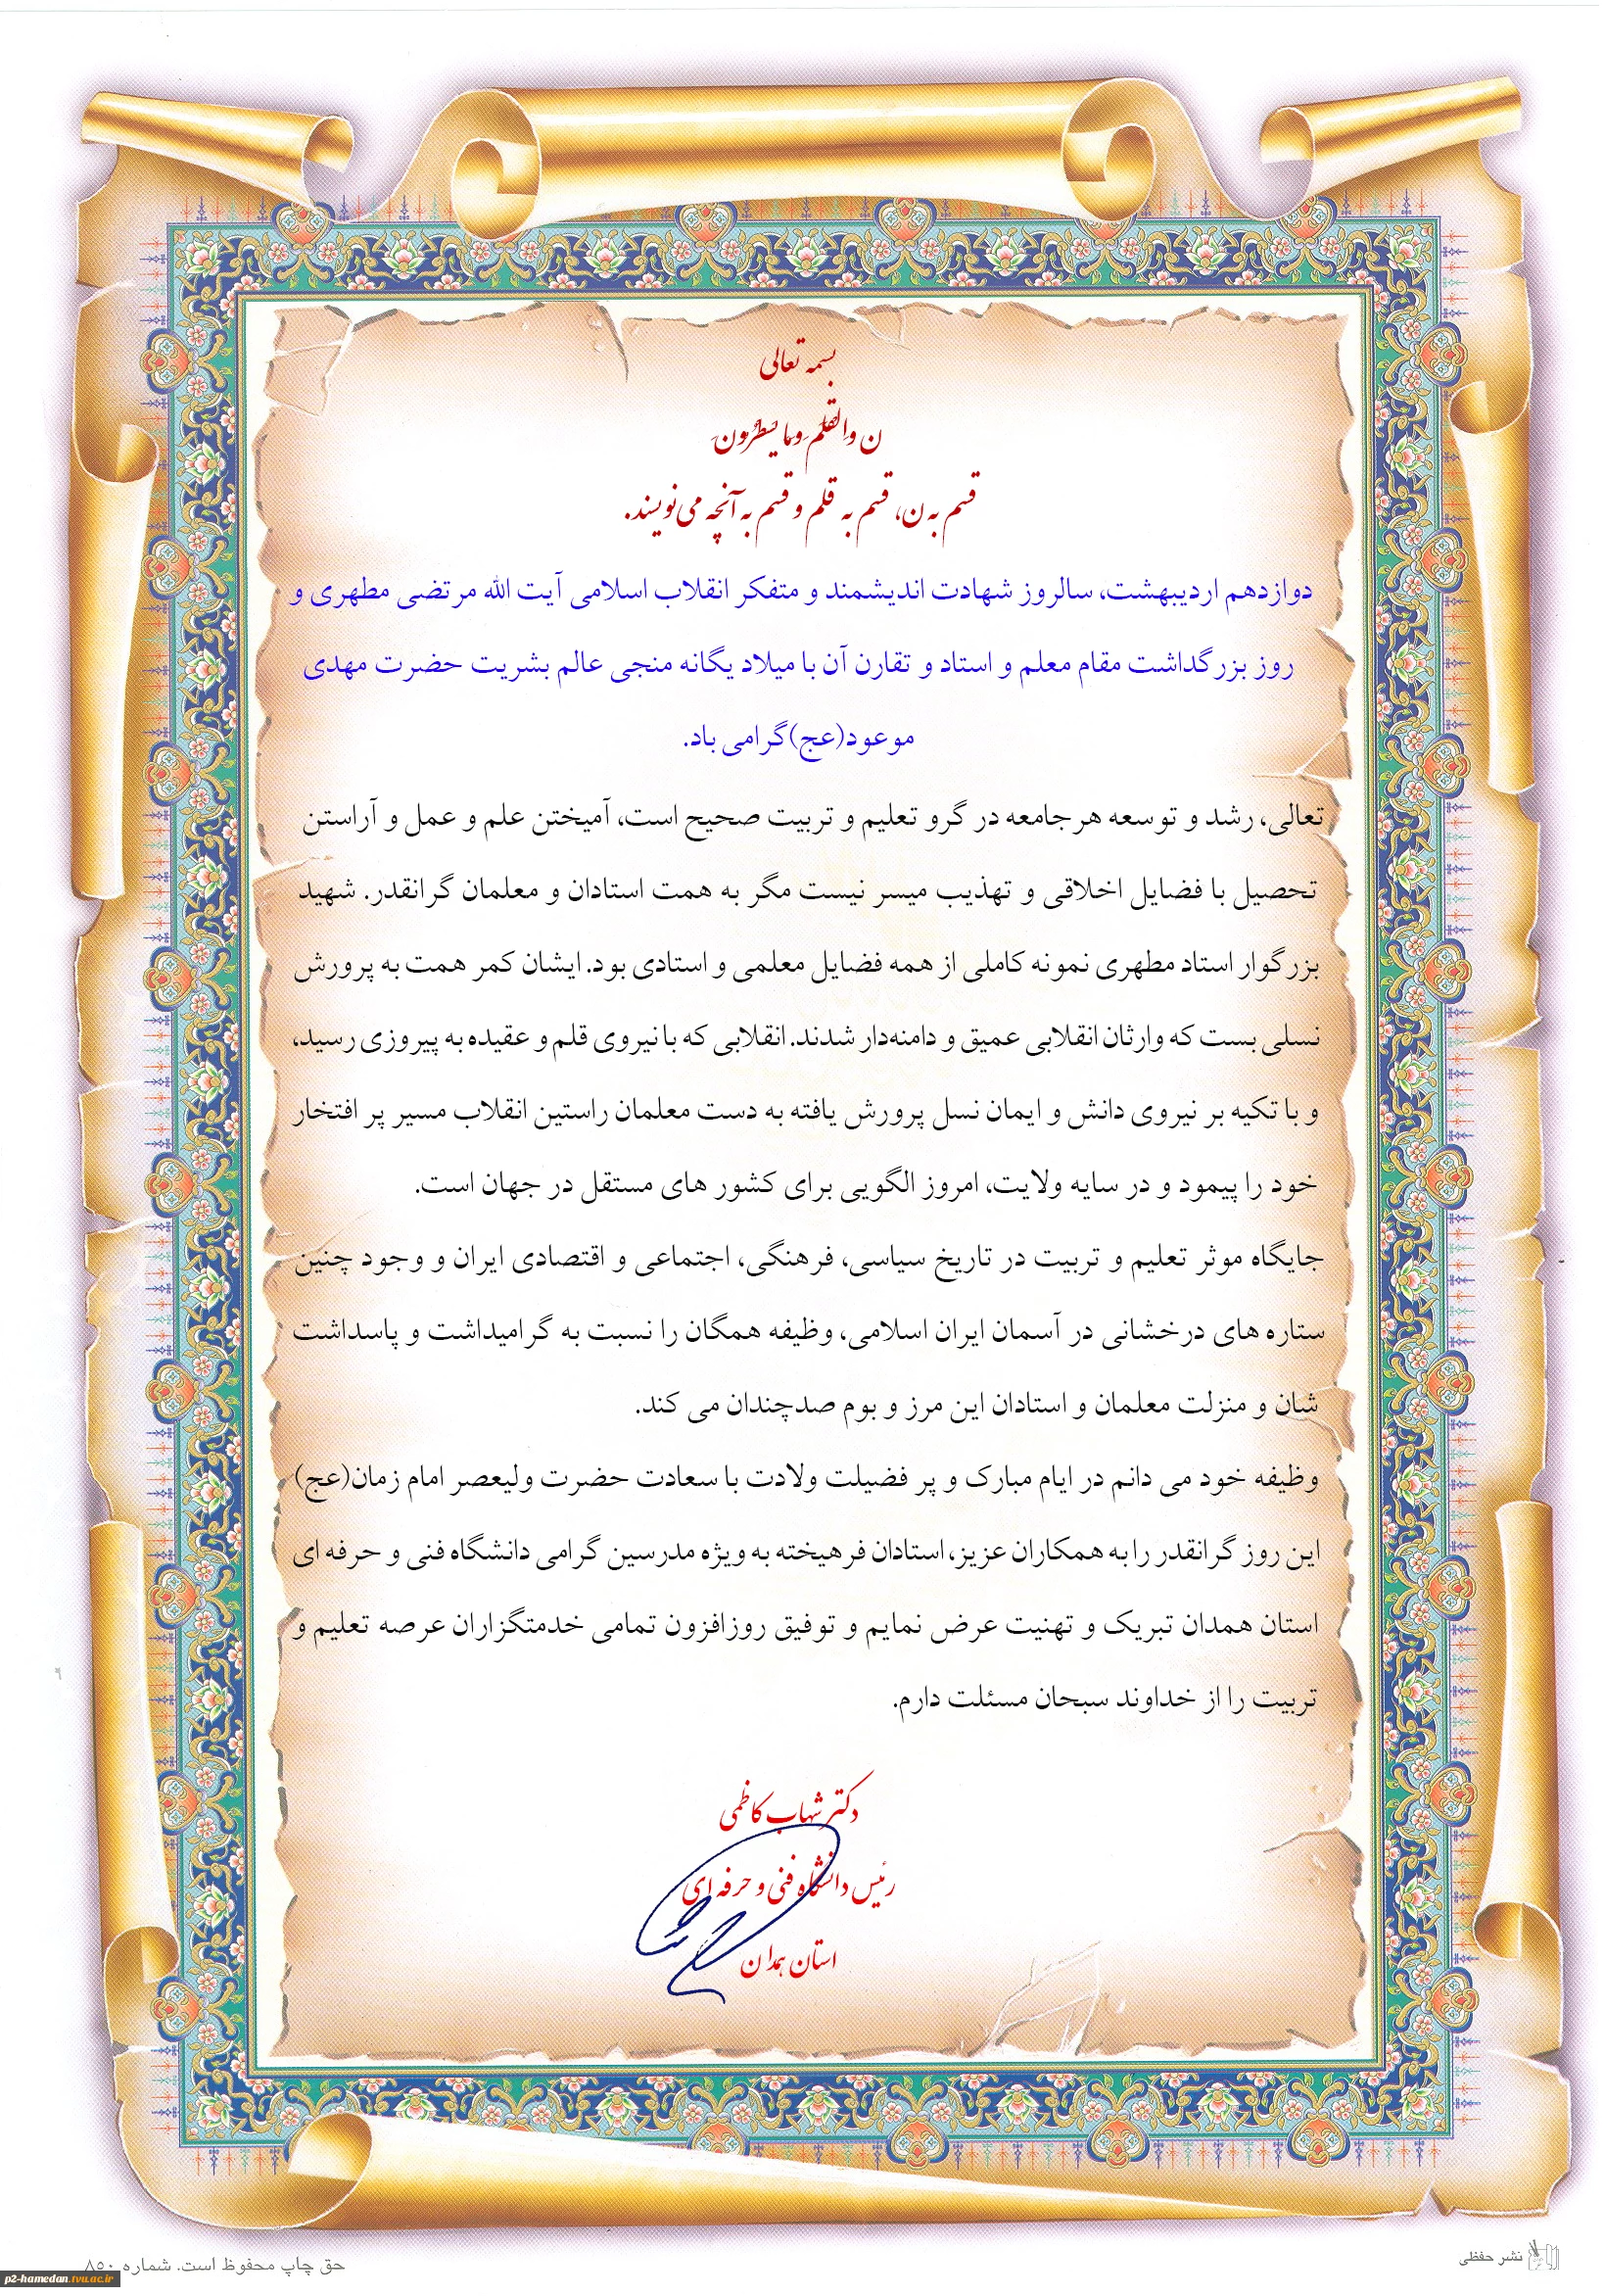 بسمه تعالی
ن وَالْقَلَمِ وَمَا يَسْطُرُونَ
قسم به ن، قسم به قلم و قسم به آنچه می‌نویسند.
دوازدهم اردیبهشت، سالروز شهادت اندیشمند و متفکر انقلاب اسلامی آیت الله مرتضی مطهری و
روز بزرگداشت مقام معلم و استاد و تقارن آن با میلاد یگانه منجی عالم بشریت حضرت مهدی
موعود(عج)گرامی باد.
تعالی، رشد و توسعه هرجامعه در گرو تعلیم و تربیت صحیح است، آمیختن علم و عمل و آراستن
تحصیل با فضایل اخلاقی و تهذیب میسر نیست مگر به همت استادان و معلمان گرانقدر. شهید
بزرگوار استاد مطهری نمونه کاملی از همه فضایل معلمی و استادی بود. ایشان کمر همت به پرورش
نسلی بست که وارثان انقلابی عمیق و دامنه‌دار شدند. انقلابی که با نیروی قلم و عقیده به پیروزی رسید،
و با تکیه بر نیروی دانش و ایمان نسل پرورش یافته به دست معلمان راستین انقلاب مسیر پر افتخار
خود را پیمود و در سایه ولایت، امروز الگویی برای کشور های مستقل در جهان است.
جایگاه موثر تعلیم و تربیت در تاریخ سیاسی، فرهنگی، اجتماعی و اقتصادی ایران و وجود چنین
ستاره های درخشانی در آسمان ایران اسلامی، وظیفه همگان را نسبت به گرامیداشت و پاسداشت
شان و منزلت معلمان و استادان این مرز و بوم صدچندان می کند.
وظیفه خود می دانم در ایام مبارک و پر فضیلت ولادت با سعادت حضرت ولیعصر امام زمان(عج)
این روز گرانقدر را به همکاران عزیز، استادان فرهیخته به ویژه مدرسین گرامی دانشگاه فنی و حرفه ای
استان همدان تبریک و تهنیت عرض نمایم و توفیق روزافزون تمامی خدمتگزاران عرصه تعلیم و
تربیت را از خداوند سبحان مسئلت دارم.
دکتر شهاب کاظمی
رئیس دانشگاه فنی و حرفه ای
استان همدان
نشر حفظی
حق چاپ محفوظ است. شماره ۸۵۰
p2-hamedan.tvu.ac.ir